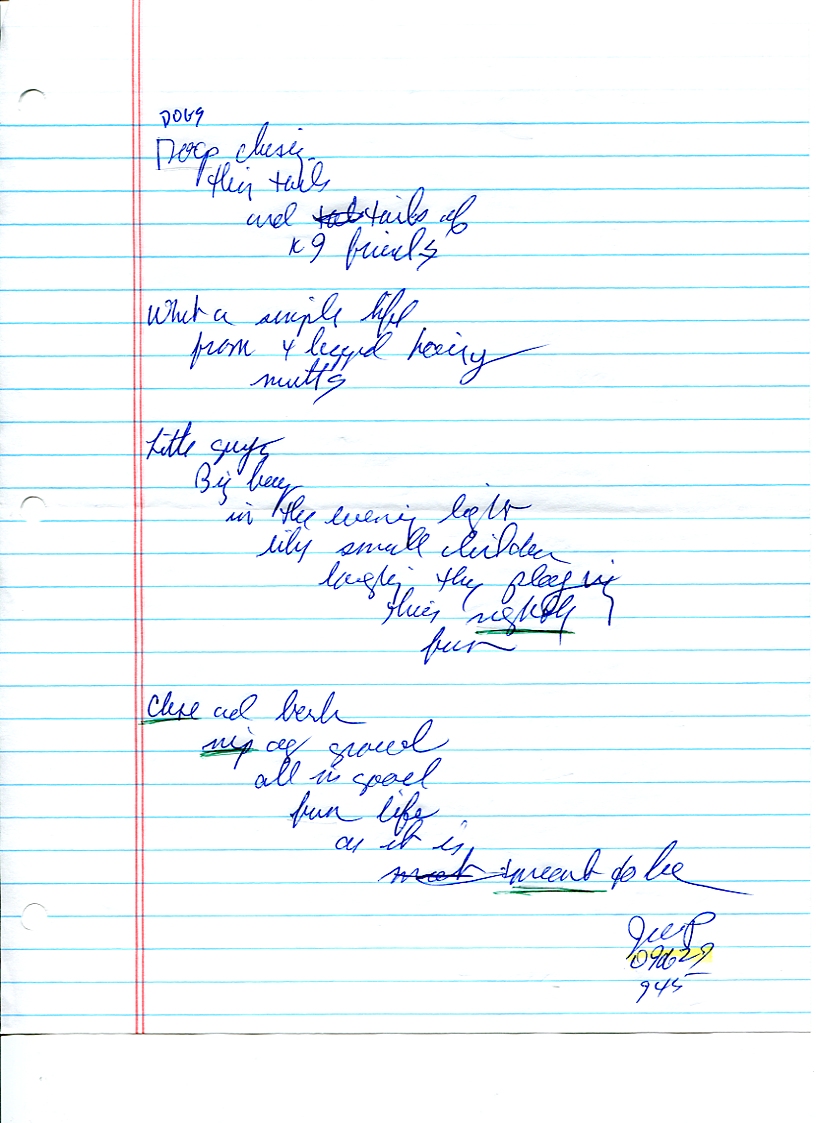 DOGS
Dogs chasing
their tails
and tails of
K9 friends
What a simple life
from 4 legged hairy
mutts
Little guys
Big boys
in the evening light
like small children
laughing they play in
their nightly
fun
Chase and bark
nip and growl
all in good
fun life
as it is
meant to be
945